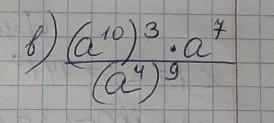 в) (a¹⁰)³ · a⁷
(a⁴)⁹